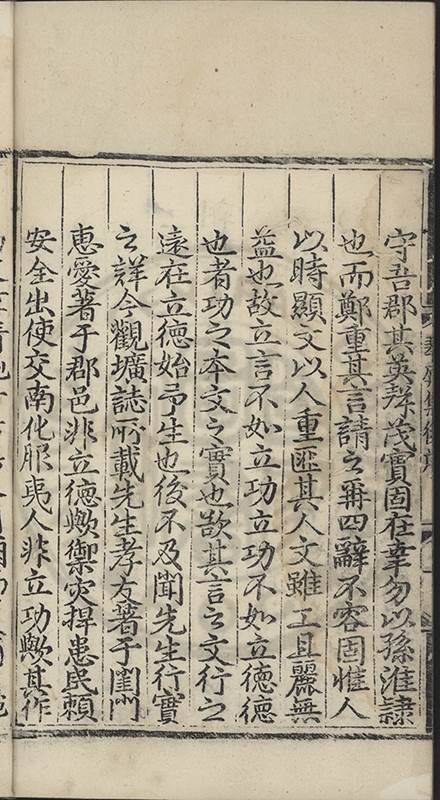 守吾郡其英蘂茂實固在幸勿以孫淮隷
也而鄭重其言請之再四辭不容固惟人
以時顯文以人重匪其人文雖工且麗無
益也故立言不如立功立功不如立德德
也者功之本文之實也歆其言之文行之
遠在立德始予生也後不及聞先生行實
之詳今觀壙誌所載先生孝友著于閨門
惠愛著于郡邑非立德歟禦灾捍患民頼
安全出使交南化服夷人非立功歟其作